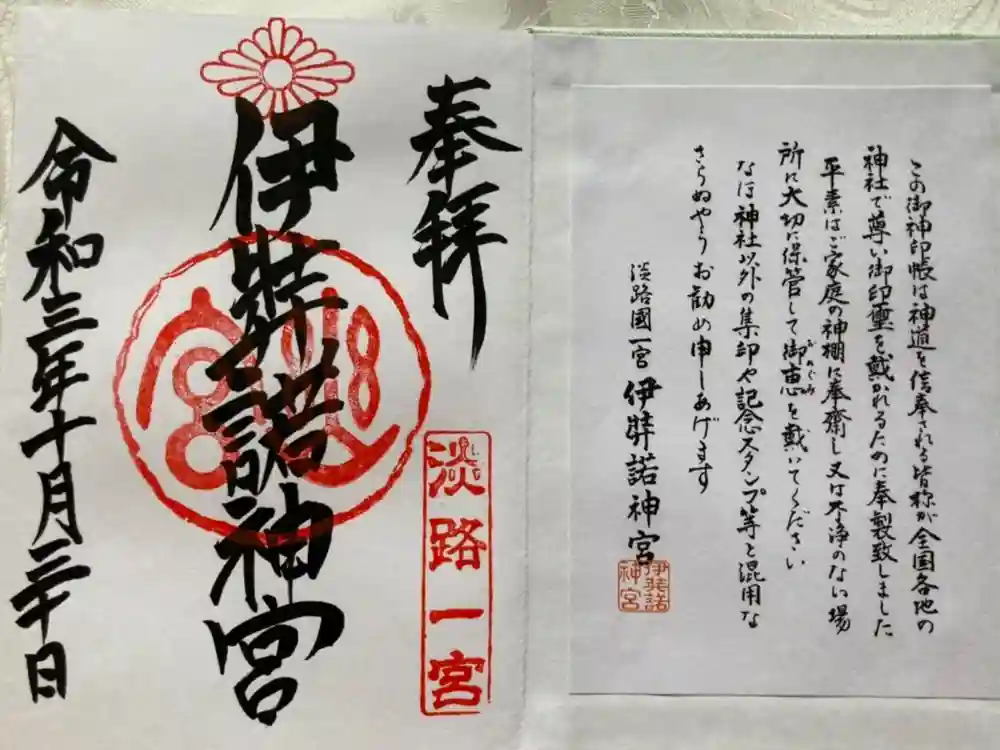 この御神印帳は神道を信奉される皆称が全国各地の
神社で尊い御印璽を戴かれるために奉製致しました
平素はご家庭の神棚に奉齋し又は不浄のない場
所に大切に保管して御恵を戴いてください
めぐみ
なほ神社以外の集印や記念スタンプ等と混用な
さらぬやうお勧め申しあげます
淡路國一宮 伊弉諾神宮
伊弉諾
神宮
奉拝
淡路一宮
伊弉諾神宮
令和三年十月三十日